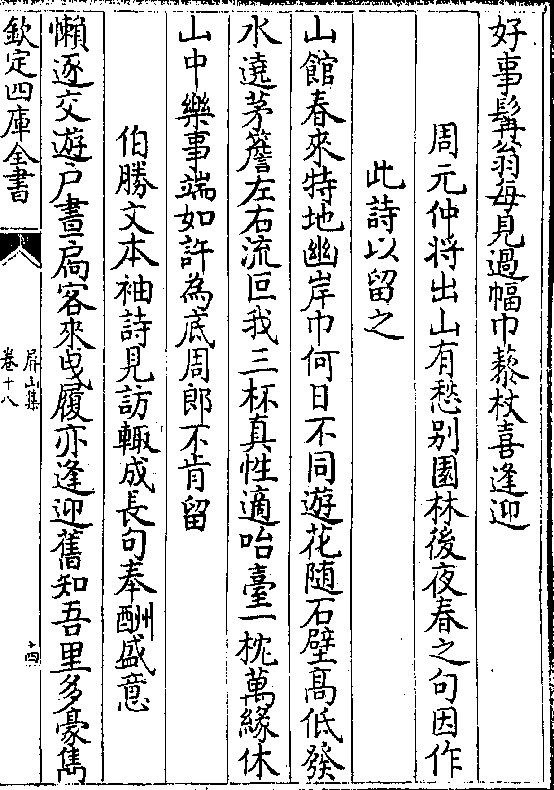 好事髯翁每見過幅巾藜杖喜逢迎
周元仲将出山有愁别園林後夜春之句因作
此詩以留之
山館春來特地幽岸巾何日不同遊花随石壁髙低發
水遶茅簷左右流叵我三杯真性適咍臺一枕萬緣休
山中樂事端如許為底周郎不肯留
伯勝文本袖詩見訪輙成長句奉酬盛意
懶逐交遊户晝扃客來曳履亦逢迎舊知吾里多豪雋
欽定四庫全書
屏山集
卷十八
十四